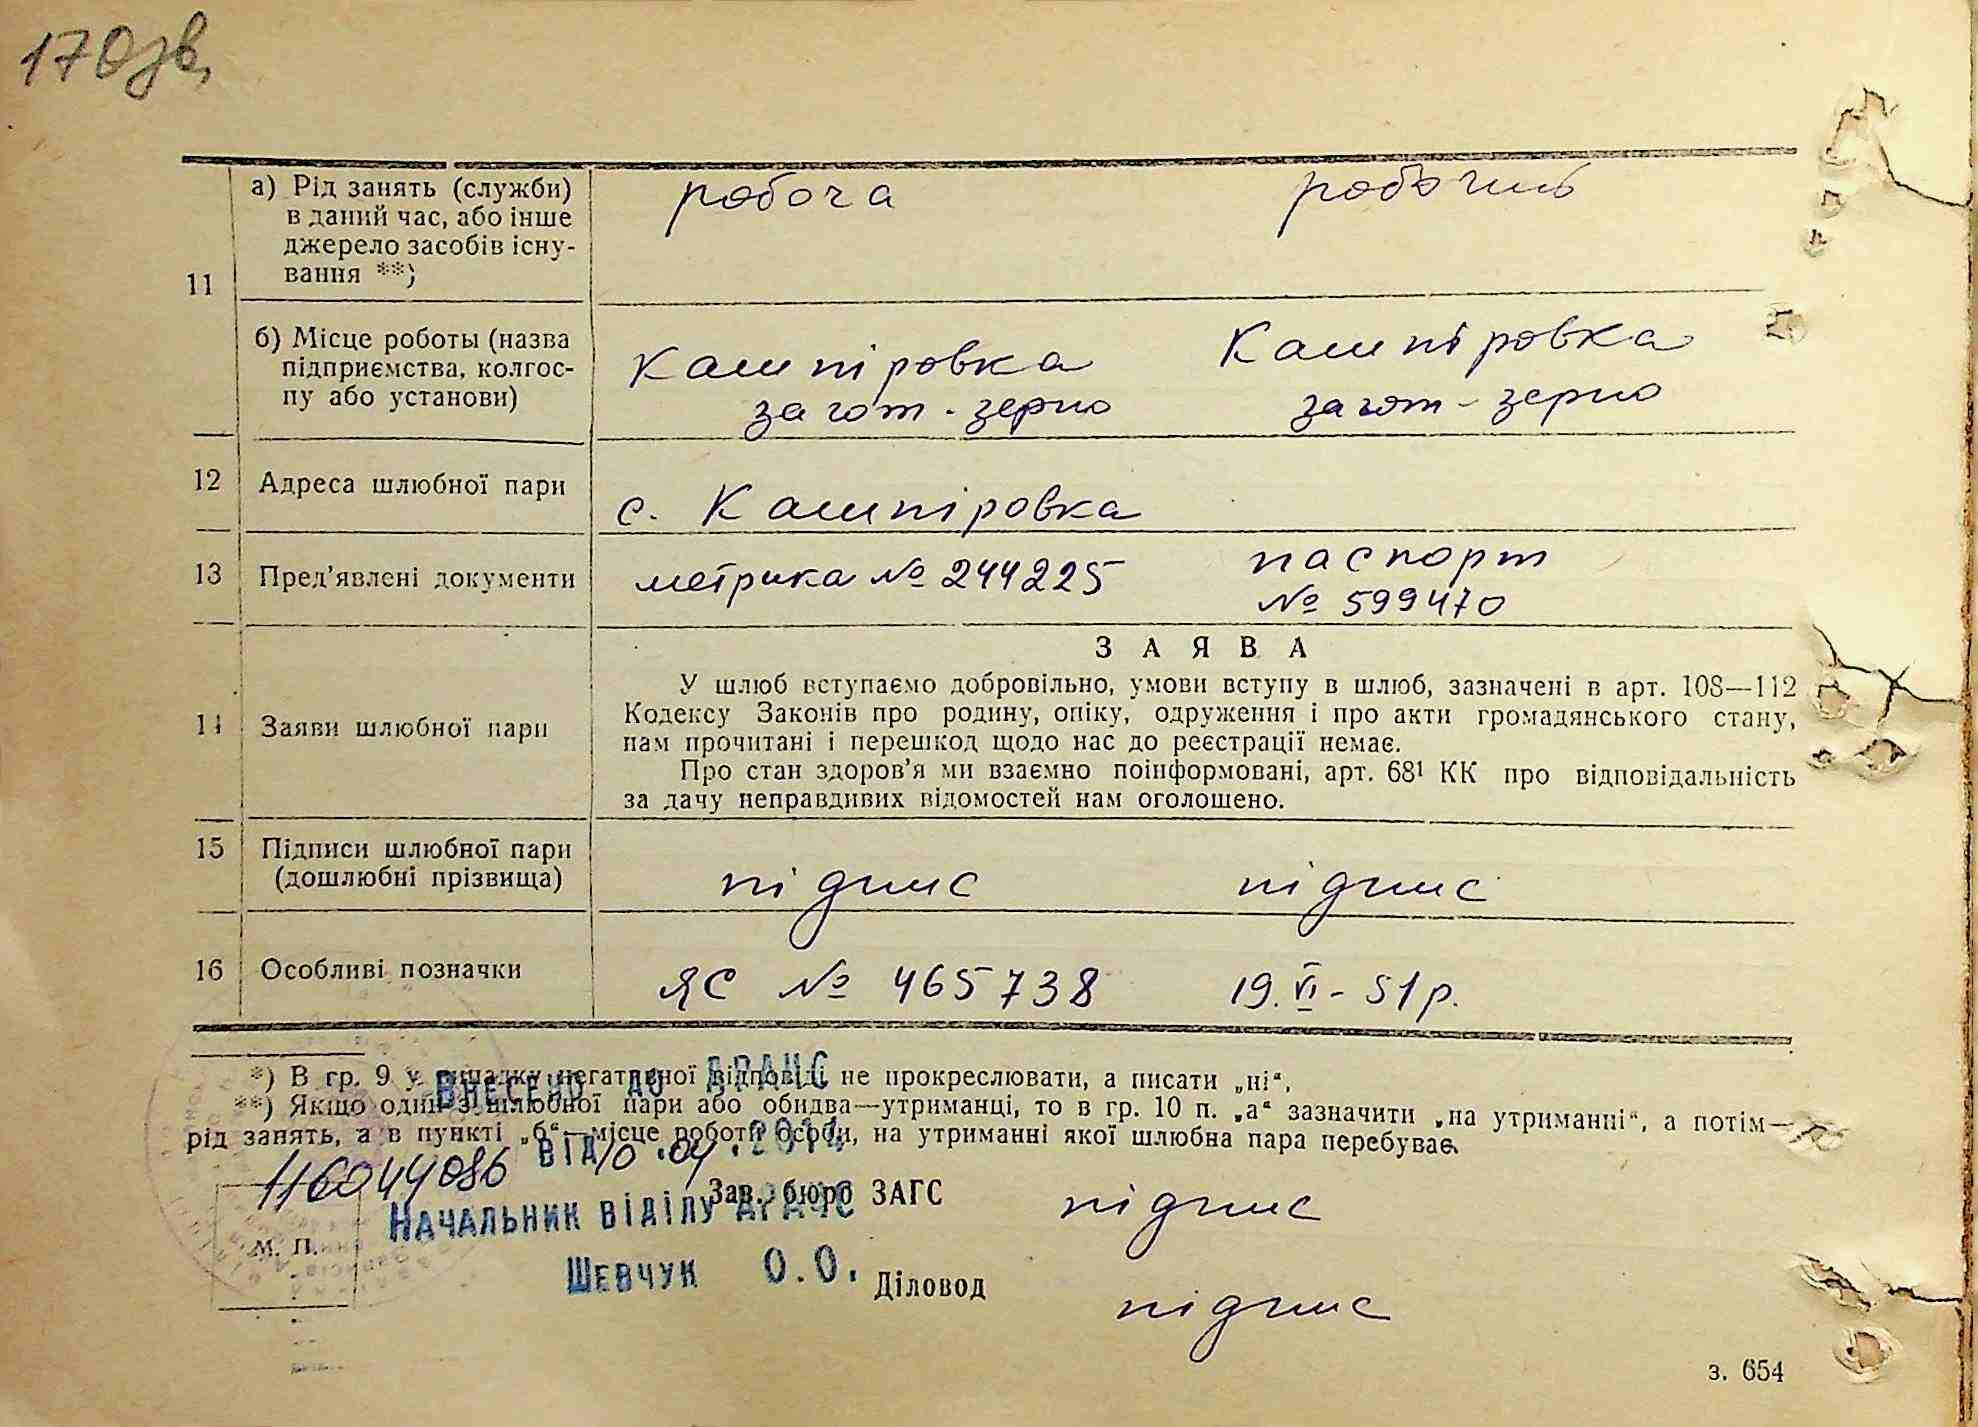 170зв.
а) Рід занять (служби)
в даний час, або інше
джерело засобів існу-
вання **)
робоча
робочий
11
б) Місце роботы (назва
підприємства, колгос-
пу або установи)
Кашпіровка
загот-зерно
Кашпіровка
загот-зерно
12
Адреса шлюбної пари
с. Кашпіровка
13
Пред’явлені документи
метрика № 244225
паспорт
№ 599470
14
Заяви шлюбної пари
ЗАЯВА
У шлюб вступаємо добровільно, умови вступу в шлюб, зазначені в арт. 108—112
Кодексу Законів про родину, опіку, одруження і про акти громадянського стану,
нам прочитані і перешкод щодо нас до реєстрації немає.
Про стан здоров’я ми взаємно поінформовані, арт. 68¹ КК про відповідальність
за дачу неправдивих відомостей нам оголошено.
15
Підписи шлюбної пари
(дошлюбні прізвища)
підпис
підпис
16
Особливі позначки
ЯС № 465738
19.VI-51р.
*) В гр. 9 у випадку негативної відповіді не прокреслювати, а писати „ні“,
**) Якщо один з шлюбної пари або обидва—утриманці, то в гр. 10 п. „а“ зазначити „на утриманні“, а потім—
рід занять, а в пункті „б“—місце роботи особи, на утриманні якої шлюбна пара перебуває.
Внесено до ДРАЦС
від 10.04.2014
116044086
Зав. бюро ЗАГС
підпис
Начальник відділу ДРАЦС
М. П.
Шевчук О.О.
Діловод
підпис
з. 654